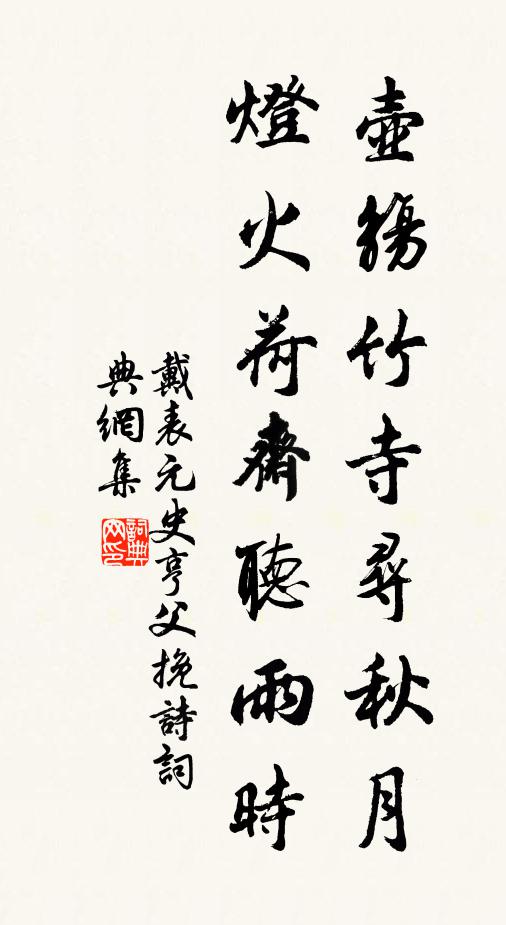 壺觴竹寺尋秋月
燈火荷齋聽雨時
戴表元史亨父挽詩詞
典網集
詞典
网印